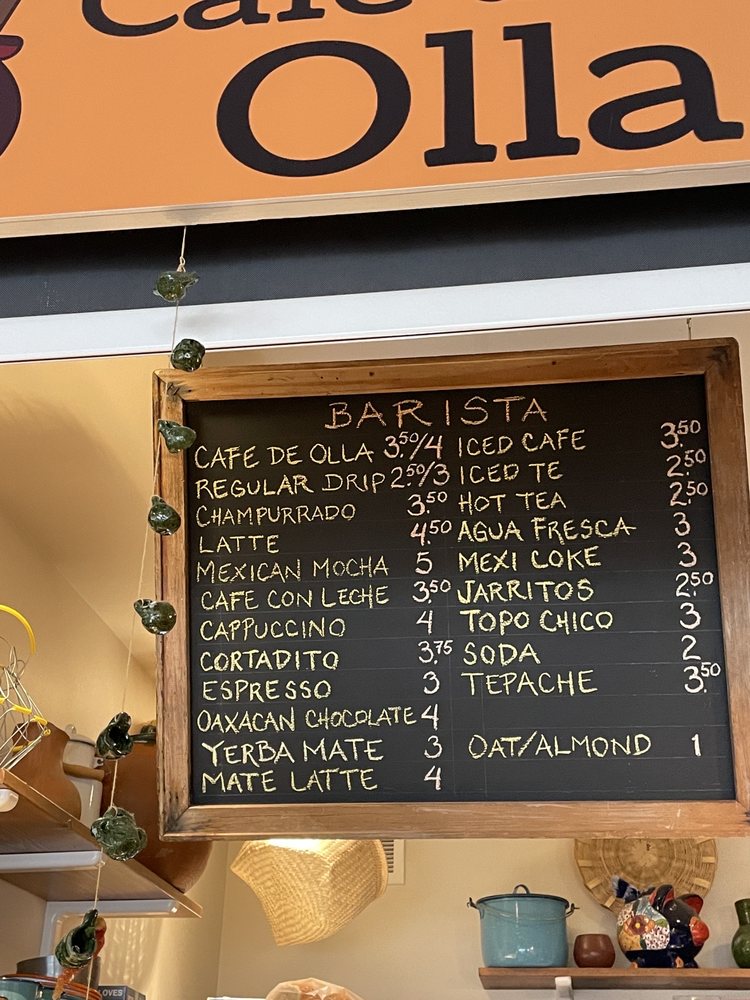 Olla
BARISTA
CAFE DE OLLA 3.50/4
REGULAR DRIP 2.50/3
CHAMPURRADO 3.50
LATTE 4.50
MEXICAN MOCHA 5
CAFE CON LECHE 3.50
CAPPUCCINO 4
CORTADITO 3.75
ESPRESSO 3
OAXACAN CHOCOLATE 4
YERBA MATE 3
MATE LATTE 4
ICED CAFE 3.50
ICED TE 2.50
HOT TEA 2.50
AGUA FRESCA 3
MEXI COKE 3
JARRITOS 2.50
TOPO CHICO 3
SODA 2
TEPACHE 3.50
OAT/ALMOND 1
LOVES